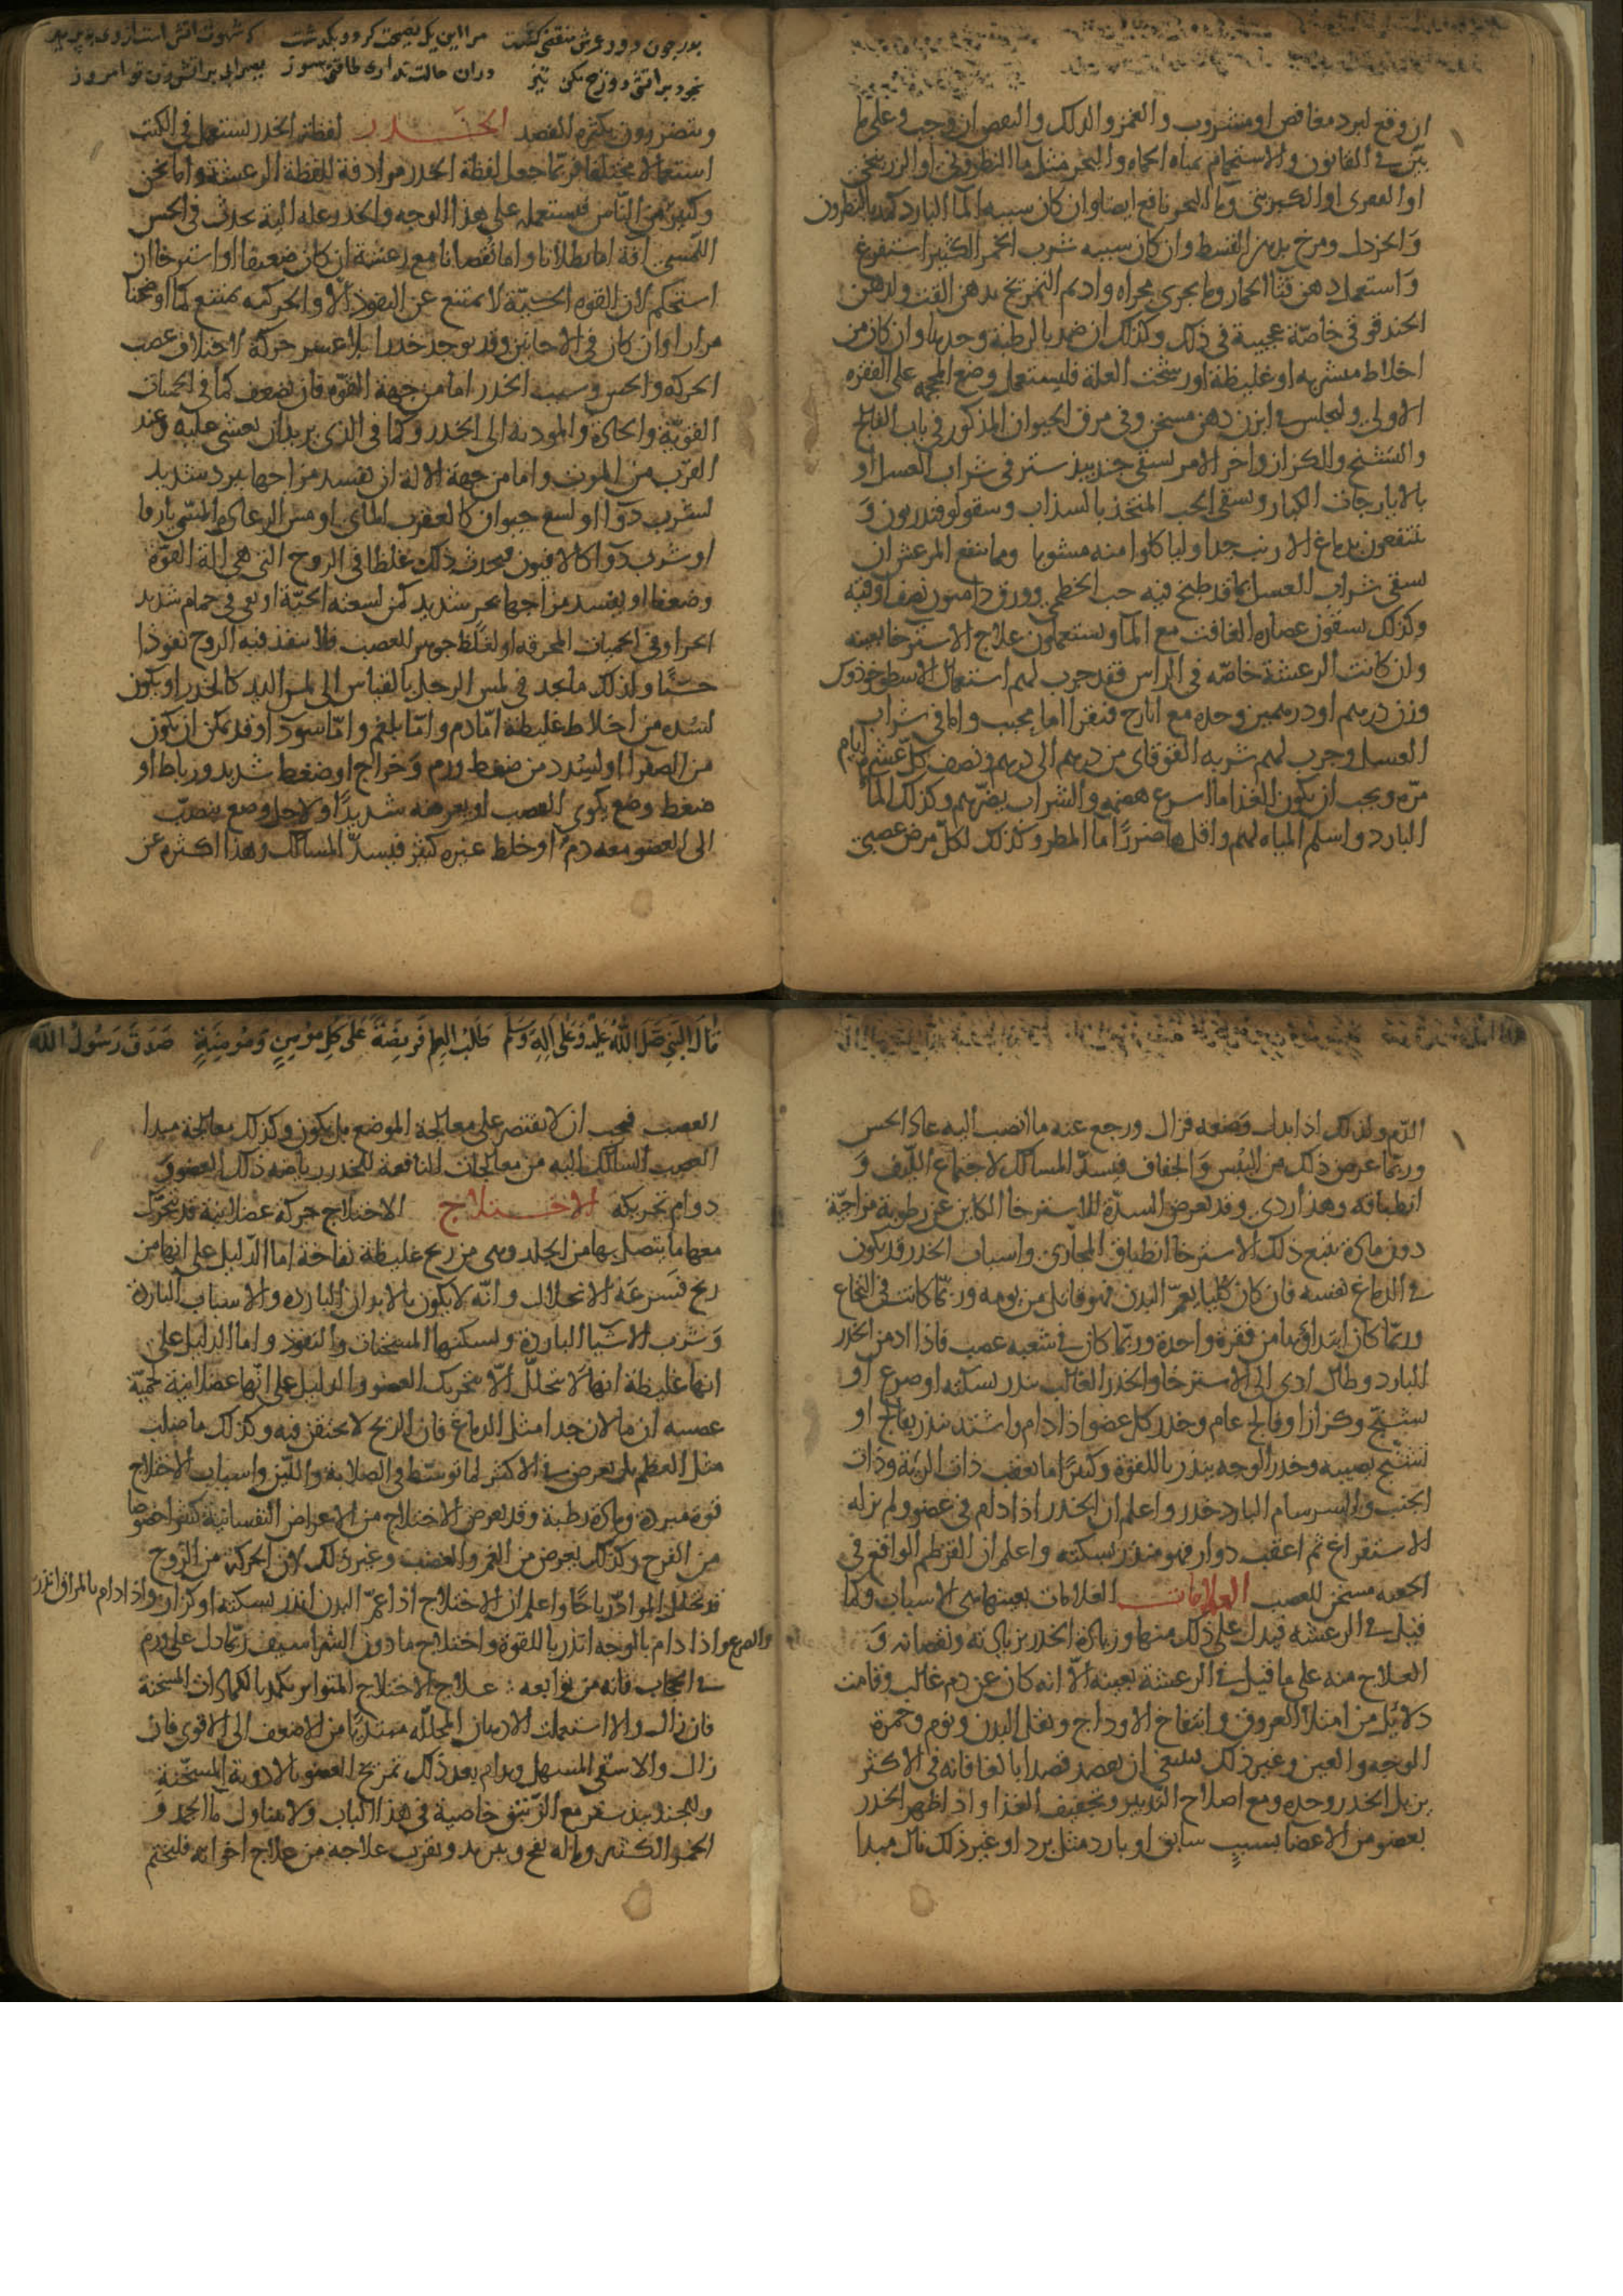 ان وقع لبرد مغافص او مشروب والغمز والدلك والنفض ان وجب وعلى ما
بيّن فى القانون والاستحمام بمياه الحماه والبحر مثل ما النطرونى او الزرنيخى
او القفرى او الكبريتى وما البحر نافع ايضا وان كان سببه الما البارد كمد بالنطرون
والخردل ومرخ بدهن القسط وان كان سببه شرب الخمر الكثير استفرغ
واستعمل دهن قثا الحمار وما يجرى مجراه واديم التمريخ بدهن القسط ولدهن
الحندقوقى خاصّة عجيبة فى ذلك وكذلك ان ضمد بالرطبة وحدها وان كان من
اخلاط متشربه او غليظة او رسخت العلة فليستعمل وضع المحجمه على الفقره
الاولى وليجلس فى ابزن دهن مسخن وفى مرق الحيوان المذكور فى باب الفالج
والتشنج والكزاز واخر الامر يسقى جندبيدستر فى شراب العسل او
بالايارجات الكبار ويسقى الحب المتخذ بالسذاب وسقولوقندريون و
ينتفعون بدماغ الارنب جدا وليا كلوا منه مشويا ومما ينفع المرعش ان
يسقى شراب العسل بما قد طبخ فيه حب الخطمى وورق دامنون نصف اوقيه
وكذلك يسقون عصاره الغافت مع الما ويستعملون علاج الاسترخا بعينه
وان كانت الرعشة خاصّه فى الراس فقد جرب لهم استعمال الاسطوخدوس
وزن درهم او درهمين وحده مع ايارج فيقرا اما بحبب واما فى شراب
العسل وجرب لهم شربه القوقاى من درهم الى درهم ونصف كلّ عشره ايام
مرّه ويجب ان يكون الغذا ما اسرع هضمه والشراب يضرّهم وكذلك الما
البارد واسلم المياه لهم واقلها ضررًا ما المطر وكذلك لكلّ مرض عصبى
ويتضررون بكثره الفصد الخدر لفظة الخدر يستعمل فى الكتب
استعمالا مختلفا فربما جعل لفظة الخدر مرادفة للفظة الرعشة واما نحن
وكثير من النّاس فيستعمله على هذا الوجه والخدر علة الية تحدث فى الحس
اللمسى افة اما بطلانا واما نقصانا مع رعشة ان كان ضعيفا او استرخا ان
استحكم لان القوه الحسّيّة لا تمتنع عن النفوذ الا والحركيه تمتنع كما اوضحنا
مرارا وان كان فى الاحايين قد يوجد خدر بلا عسر حركة لاختلاف عصب
الحركه والحس وسبب الخدر اما من جهة القوّه فان تضعف كما فى الحميات
القويّة والحادة والمودية الى الخدر وكما فى الذى يريد ان يغشى عليه وعند
القرب من الموت واما من جهة الالة ان يفسد مزاجها ببرد شديد
لشرب دوا او لسع حيوان كالعقرب المائى او مس الرعاده المسمى بارقا
او شرب دوا كالافيون فيحدث ذلك غلظا فى الروح التى هى الة القوّة
وضعفا او يفسد مزاجها بحر شديد كمن لسعته الحيّة او بقى فى حمام شديد
الحر او فى الحميات المحرقه او لغلظ جوهر العصب فلا ينفذ فيه الروح نفوذا
حسنًا ولذلك ما نجد فى لمس الرجل بالقياس الى لمس اليد كالخدر او يكون
لسده من اخلاط غليظة امّا دم وامّا بلغم وامّا سودا وقد يمكن ان يكون
من الصفرا او لسدد من ضغط ورم وخراج او ضغط شديد ورباط او
ضغط وضع يلوى العصب او يعرضه شديدًا ولاجل وضع ينصبّ
الى العضو معه دمٌ او خلط غيره كثير فيسدّ المسالك وهذا اكثره عن
قال النبى صلى الله عليه وعلى اله وسلم طلب العلم فريضة على كل مؤمن ومؤمنة صدق رسول الله
الدّم ولذلك اذا بدل وضعه فزال ورجع عنه ما انصب اليه عاد الحس
وربّما عرض ذلك من اليُبْس والجفاف فيسدّ المسالك لاجتماع اللّيف و
انطباقه وهذا ردى وقد تعرض السدّة للاسترخا الكاين عن رطوبة مزاجيّة
دون مادة يتبع ذلك الاسترخا انطباق المجارى واسباب الخدر قد يكون
فى الدماغ نفسه فان كان كليا يعمّ البدن فهو قاتل من يومه وربّما كانت فى النخاع
وربّما كان ابتداؤها من فقرة واحدة وربّما كان فى شعبه عصب فاذا ادمن الخدر
البارد وطال ادى الى الاسترخا والخدر الغالب ينذر بسكته او صرع او
تشنّج وكزاز او فالج عام وخدر كل عضو اذا دام واشتد ينذر بفالج او
تشنّج يصيبه وخدر الوجه ينذر باللقوة وكثيرًا ما يعقب ذات الرئة وذات
الجنب والسرسام البارد خدر واعلم ان الخدر اذا دام فى عضو ولم يزله
الاستفراغ ثم اعقب دوار فهو منذر بسكته واعلم ان القرطم الواقع فى
الحقنه مسخن للعصب العلامات العلامات بعينها هى الاسباب وكما
قيل فى الرعشه فيدل على ذلك منها وزيادة الخدر بزيادته ونقصانه و
العلاج منه على ما قيل فى الرعشة بعينه الّا انه كان عن دم غالب وقامت
دلائل من امتلا العروق وانتفاخ الاوداج وثقل البدن ونوم وحمرة
الوجه والعين وغير ذلك ينبغى ان يفصد فصدا بالغا فانه فى الاكثر
يزيل الخدر وحده ومع اصلاح التّدبير وتخفيف الغذا واذا ظهر الخدر
بعضو من الاعضا بسببٍ سابق او بارد مثل برد او غير ذلك نال مبدا
العصب فيجب ان لا يقتصر على معالجة الموضع بل يكون وكذلك معالجة مبدا
العصب السالك اليه من معالجات النافعة للخدر رياضه ذلك العضو و
دوام تحريكه الاختلاج الاختلاج حركة عضلانية قد يتحرّك
معها ما يتصل بها من الجلد وهى من ريح غليظة نفاخة اما الدّليل على انها من
ريح فسرعَة الانحلال وانّه لا يكون بالابدان الباردة والاسباب الباردة
وشرب الاشيا الباردة ويسكنها المسخنات والنفوذ واما الدليل على
انها غليظة انها لا تتحلّل الّا بتحريك العضو والدليل على انّها عضلانية لحميّة
عصبيه ان ما لان جدا مثل الدماغ فان الريح لا يحتقن فيه وكذلك ما صلب
مثل العظم بل يعرض فى الاكثر لما توسّط فى الصلابة واللّين واسباب الاختلاج
قوة مبردة ومادة رطبة وقد يعرض الاختلاج من الاعراض النفسانية كثيرا خصوصا
من الفرح وكذلك يعرض من الغم والغضب وغير ذلك لان الحركة من الرّوح
قد تحلّل المواد رياحًا واعلم ان الاختلاج اذا عمّ البدن انذر بسكتة او كزاز واذا دام بالمراق انذر
والصرع واذا دام بالوجه انذر باللقوة واختلاج ما دون الشراسيف ربّما دل على ورم
فى الحجاب فانه من توابعه : علاج الاختلاج المتواتر يكمد بالكمادات المسخنة
فان زال والا استعملت الادهان المحلّله مبتديًا من الاضعف الى الاقوى فان
زال والا سقى المسهل ويدام بعد ذلك تمريخ العضو بالادوية المسخّنة
وللجندبيدستر مع الزّنبق خاصية فى هذا الباب ولا يتناول ما الجمد و
الخمر الكثير وما له نفخ وتبريد ويقرب علاجه من علاج اخوانه فليختم